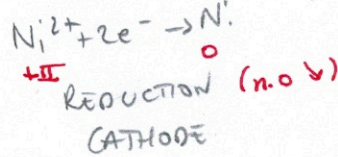 Ni²⁺ + 2e⁻ → Ni
+II 0
REDUCTION (n.o ↘)
CATHODE